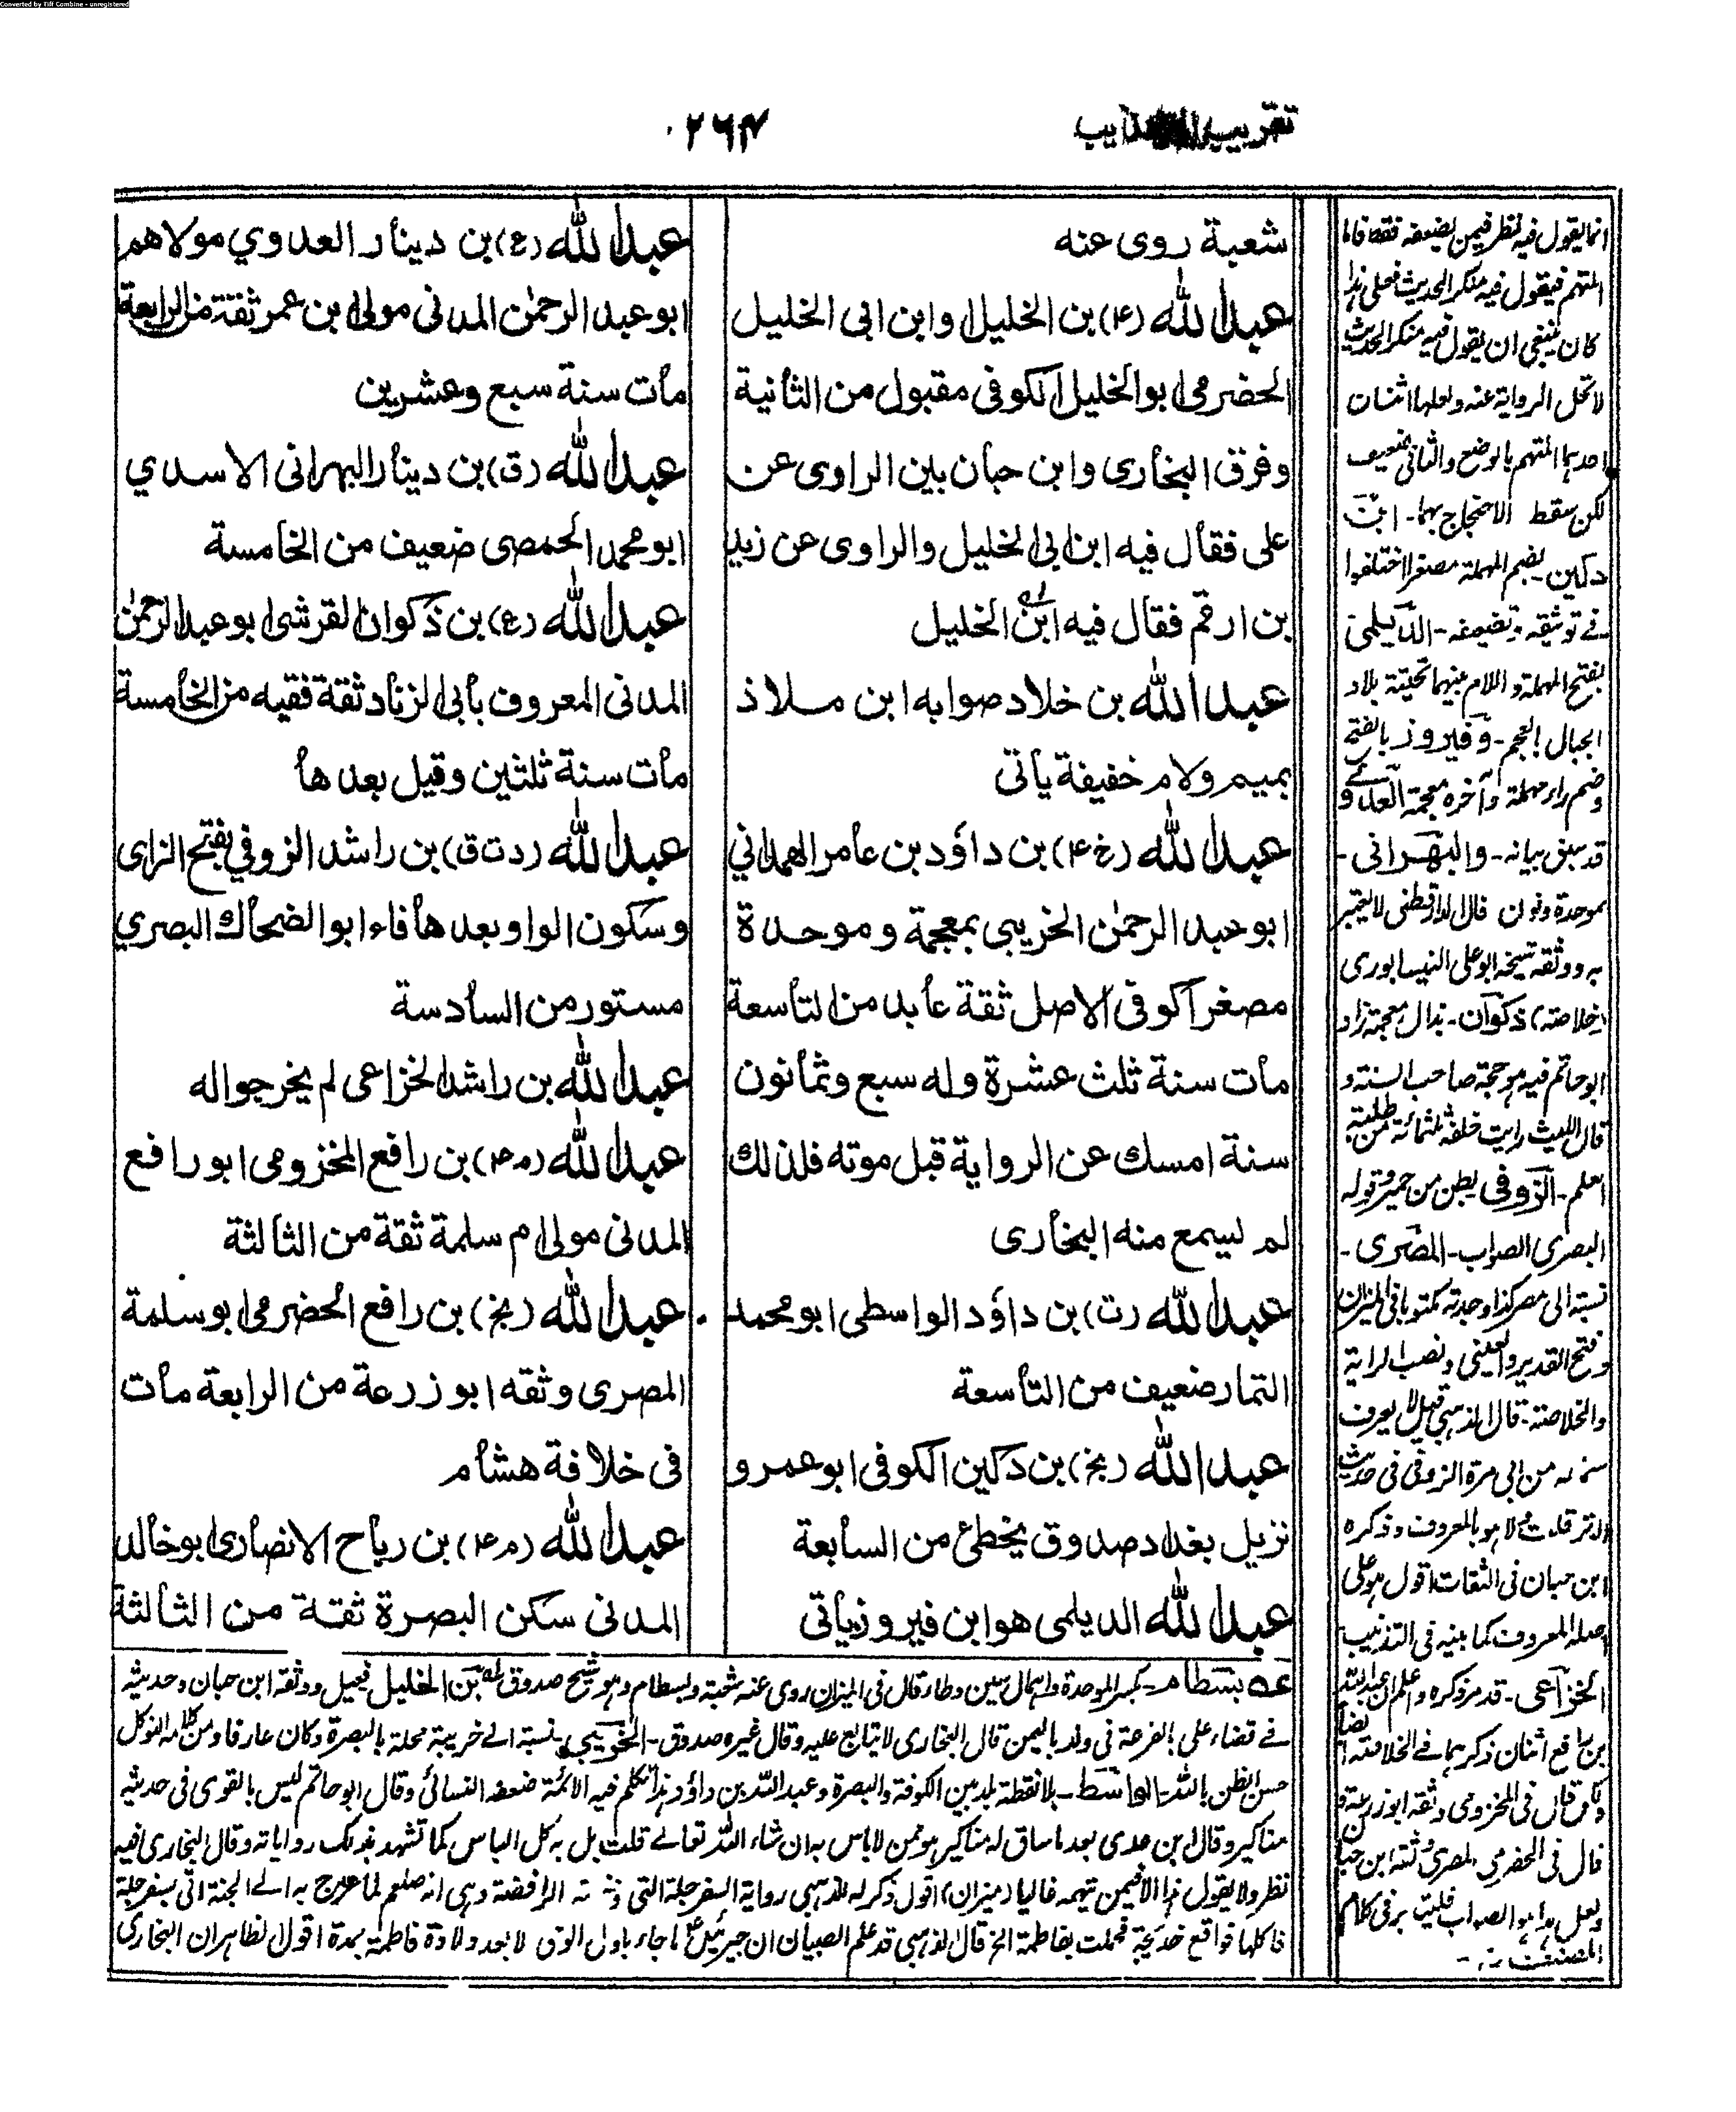 Converted by Tiff Combine - unregistered
تقريب
٢٦٤
شعبة روى عنه
عبد الله (٤) بن الخليل او ابن ابى الخليل
الحضرمى ابو الخليل الكوفى مقبول من الثانية
وفرق البخارى وابن حبان بين الراوى عن
على فقال فيه ابن ابى الخليل والراوى عن زيد
بن ارقم فقال فيه ابن الخليل
عبد الله بن خلاد صوابه ابن ملاذ
بميم ولام خفيفة يأتى
عبد الله (خ ٤) بن داؤد بن عامر الهمدانى
ابو عبد الرحمٰن الخريبى بمعجمة وموحدة
مصغرا كوفى الاصل ثقة عابد من التاسعة
مات سنة ثلث عشرة وله سبع وثمانون
سنة امسك عن الرواية قبل موته فلذلك
لم يسمع منه البخارى
عبد الله (ت) بن داؤد الواسطى ابو محمد
التمار ضعيف من التاسعة
عبد الله (بخ) بن دكين الكوفى ابو عمرو
نزيل بغداد صدوق يخطئ من السابعة
عبد الله الديلمى هو ابن فيروز يأتى
عبد الله (ع) بن دينار العدوي مولاهم
ابو عبد الرحمٰن المدنى مولى ابن عمر ثقة من الرابعة
مات سنة سبع وعشرين
عبد الله (ق) بن دينار البهرانى الاسدي
ابو محمد الحمصى ضعيف من الخامسة
عبد الله (ع) بن ذكوان القرشى ابو عبد الرحمٰن
المدنى المعروف بأبى الزناد ثقة فقيه من الخامسة
مات سنة ثلثين وقيل بعدها
عبد الله (د ت ق) بن راشد الزوفي بفتح الزاى
وسكون الواو بعدها فاء ابو الضحاك البصري
مستور من السادسة
عبد الله بن راشد الخزاعى لم يخرجوا له
عبد الله (م ٤) بن رافع المخزومى ابو رافع
المدنى مولى ام سلمة ثقة من الثالثة
عبد الله (بخ) بن رافع الحضرمى ابو سلمة
المصرى وثقه ابو زرعة من الرابعة مات
فى خلافة هشام
عبد الله (م ٤) بن رباح الانصارى ابو خالد
المدنى سكن البصرة ثقة من الثالثة
انما يقول فيه نظر فيمن يضعفه فقط فاما
المتهم فيقول فيه منكر الحديث فعلى هذا
كان ينبغى ان يقول فيه منكر الحديث
لا تحل الرواية عنه ولعلهما اثنان
احدهما المتهم بالوضع والثانى ضعيف
لكن سقط الاحتجاج بهما - ابن
دكين - بضم المهملة مصغرا اختلفوا
فے توثيقه وتضعيفه - الديلمى
بفتح المهملة واللام بينهما تحتية بلاد
الجبال بالعجم - وفيروز بالفتح
وضم راء مهملة وآخره معجمة العدوى
قد سبق بيانه - والبهرانى -
بموحدة ونون قال الدارقطنى لا يعتبر
به ووثقه شيخه ابو على النيسابورى
(خلاصة) ذكوان - بذال معجمة زاد
ابو حاتم فيه هو حجة صاحب السنة و
قال الليث رايت خلفه ثلثمائة من طلبة
العلم - الزوفى بطن من حمير وقوله
البصرى الصواب - المصرى -
نسبة الى مصر كذا وجدته مكتوبا فى الميزان
وفتح القدير والعينى ونصب الراية
والخلاصة - قال الذهبى قيل لا يعرف
سماعه من ابى مرة الزوفى فى حديث
الوتر قلت ولا هو بالمعروف وذكره
ابن حبان فى الثقات اقول هو على
اصله المعروف كما بينه فى التذنيب
الخزاعى - قد مر ذكره واعلم ان عبد الله
بن رافع اثنان ذكرهما فے الخلاصة ايضا
قال فى المخزومى وثقه ابو زرعة و
قال فى الحضرمى المصرى وثقه ابن حبان
ولعل هذا هو الصواب فليتدبر فى كلام
المصنف
عه بسطام - بكسر الموحدة واهمال سين وطاء قال فى الميزان روى عنه شعبة وبسطام وهو شيخ صدوق له بن الخليل بجيل ووثقه ابن حبان وحديثه
فے قضاء على بالقرعة فى ولد باليمن قال البخارى لا يتابع عليه وقال غيره صدوق - الخريبى - نسبة الے خريبة محلة بالبصرة وكان عارفا ومن كلامه التوكل
حسن الظن بالله - الواسط - بلا نقطة بلد بين الكوفة والبصرة وعبد الله بن داؤد هذا تكلم فيه الائمة ضعفه النسائى وقال ابو حاتم ليس بالقوى فى حديثه
مناكير وقال ابن عدى بعد ما ساق له مناكير هو ممن لا باس به ان شاء الله تعالے قلت بل به كل الباس كما تشهد بذلك رواياته وقال البخارى فيه
نظر ولا يقول هذا الا فيمن يتهمه غالبا (ميزان) اقول ذكر له الذهبى رواية السفرجلة التى الرافضة وهى انه صلعم لما عرج به الے الجنة اتى بسفرجلة
فاكلها فواقع خديجة فحملت بفاطمة الخ قال الذهبى قد علم الصبيان ان جبرئيل ما جاء باول الوحى الا بعد ولادة فاطمة بمدة اقول الظاهر ان البخارى